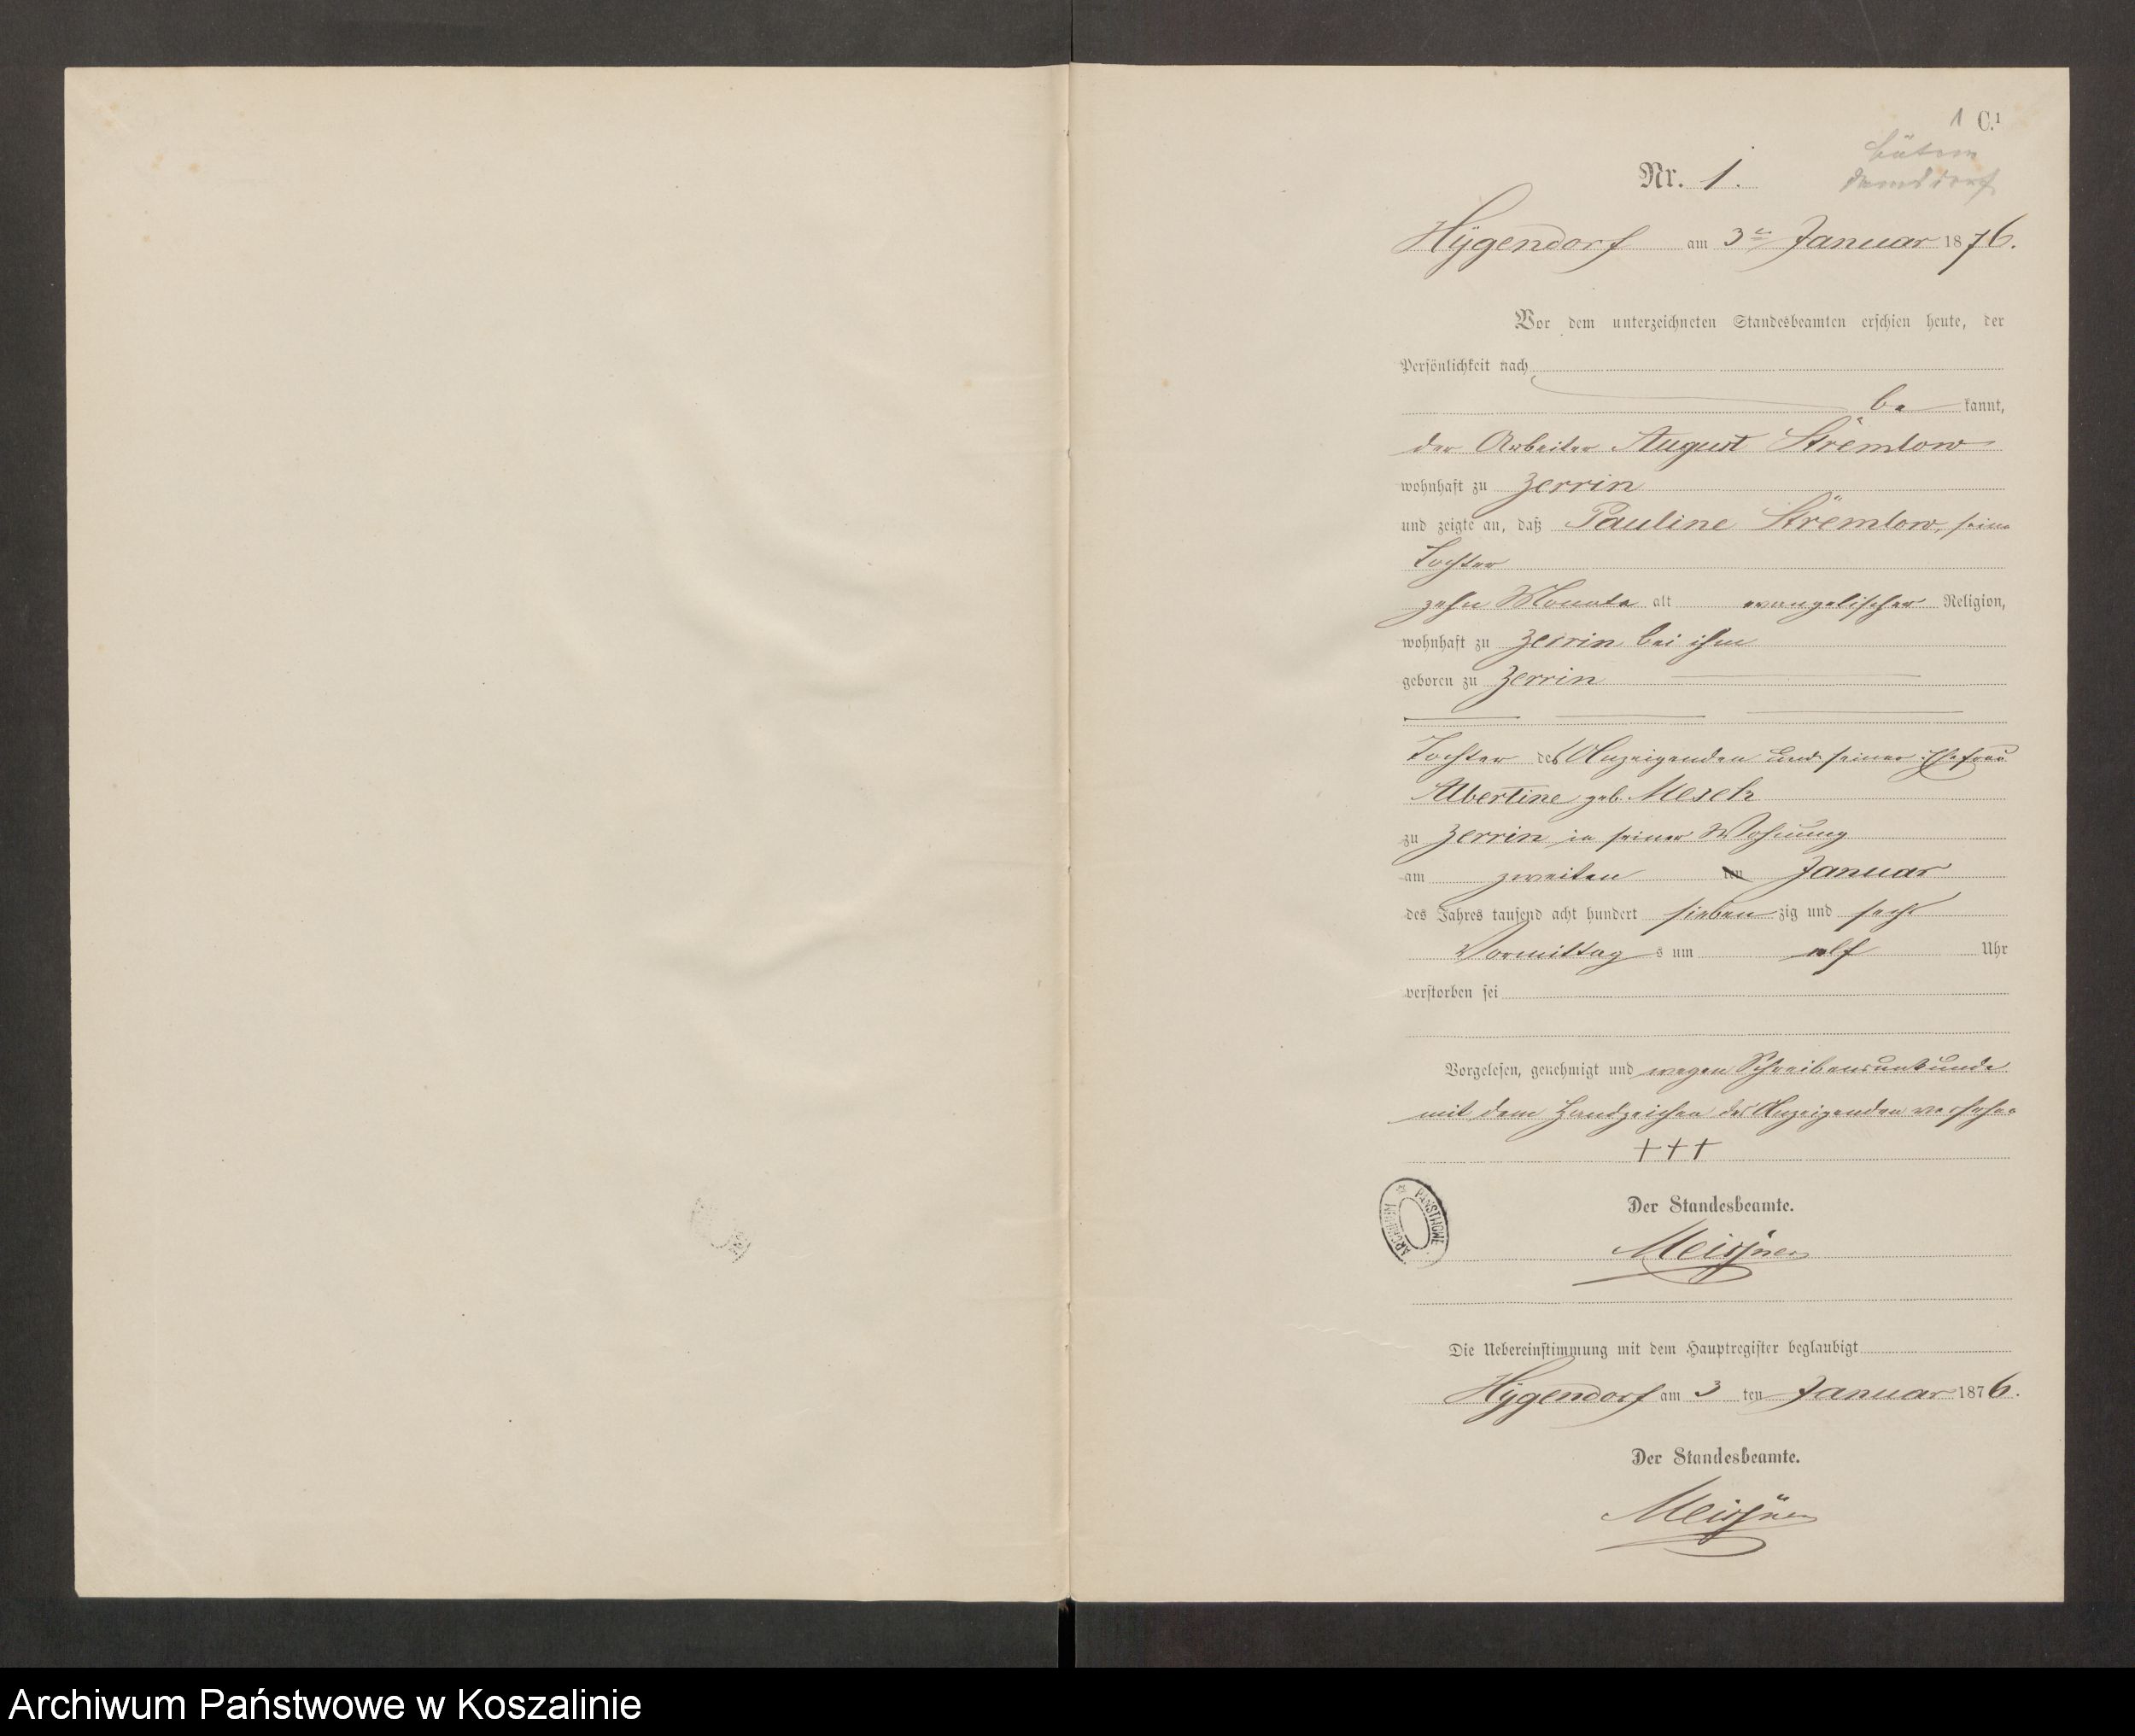 1 C.1
Bütow
Damsdorf
Nr. 1.
Hygendorf am 3ten Januar 1876.
Vor dem unterzeichneten Standesbeamten erschien heute, der
Persönlichkeit nach
be kannt,
der Arbeiter August Strömlow
wohnhaft zu Zerrin
und zeigte an, daß Pauline Strömlow, seine
Tochter
zehn Monate alt evangelischer Religion,
wohnhaft zu Zerrin bei ihm
geboren zu Zerrin
Tochter des Anzeigenden und seiner Ehefrau
Albertine geb. Mesch
zu Zerrin in seiner Wohnung
am zweiten ten Januar
des Jahres tausend acht hundert sieben zig und sechs
Vormittag s um elf Uhr
verstorben sei
Vorgelesen, genehmigt und wegen Schreibensunkunde
mit dem Handzeichen des Anzeigenden versehen
+++
ARCHIWUM PAŃSTWOWE
Der Standesbeamte.
Meißner
Die Uebereinstimmung mit dem Hauptregister beglaubigt
Hygendorf am 3 ten Januar 1876.
Der Standesbeamte.
Meißner
Archiwum Państwowe w Koszalinie